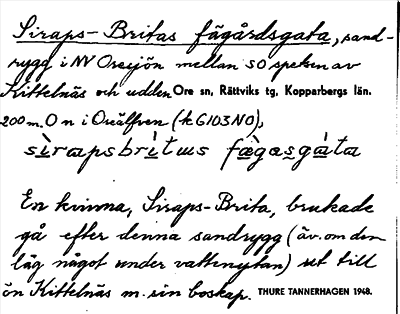 Siraps-Britas fägårdsgata, sand-
rygg i NV Oresjön mellan SO spetsen av
Kittelnäs och udden Ore sn, Rättviks tg, Kopparbergs län.
200 m. O n i Oreälven (k G103NO),
En kvinna, Siraps-Brita, brukade
gå efter denna sandrygg (äv. om den
låg något under vattenytan) ut till
ön Kittelnäs m. sin boskap. THURE TANNERHAGEN 1948.